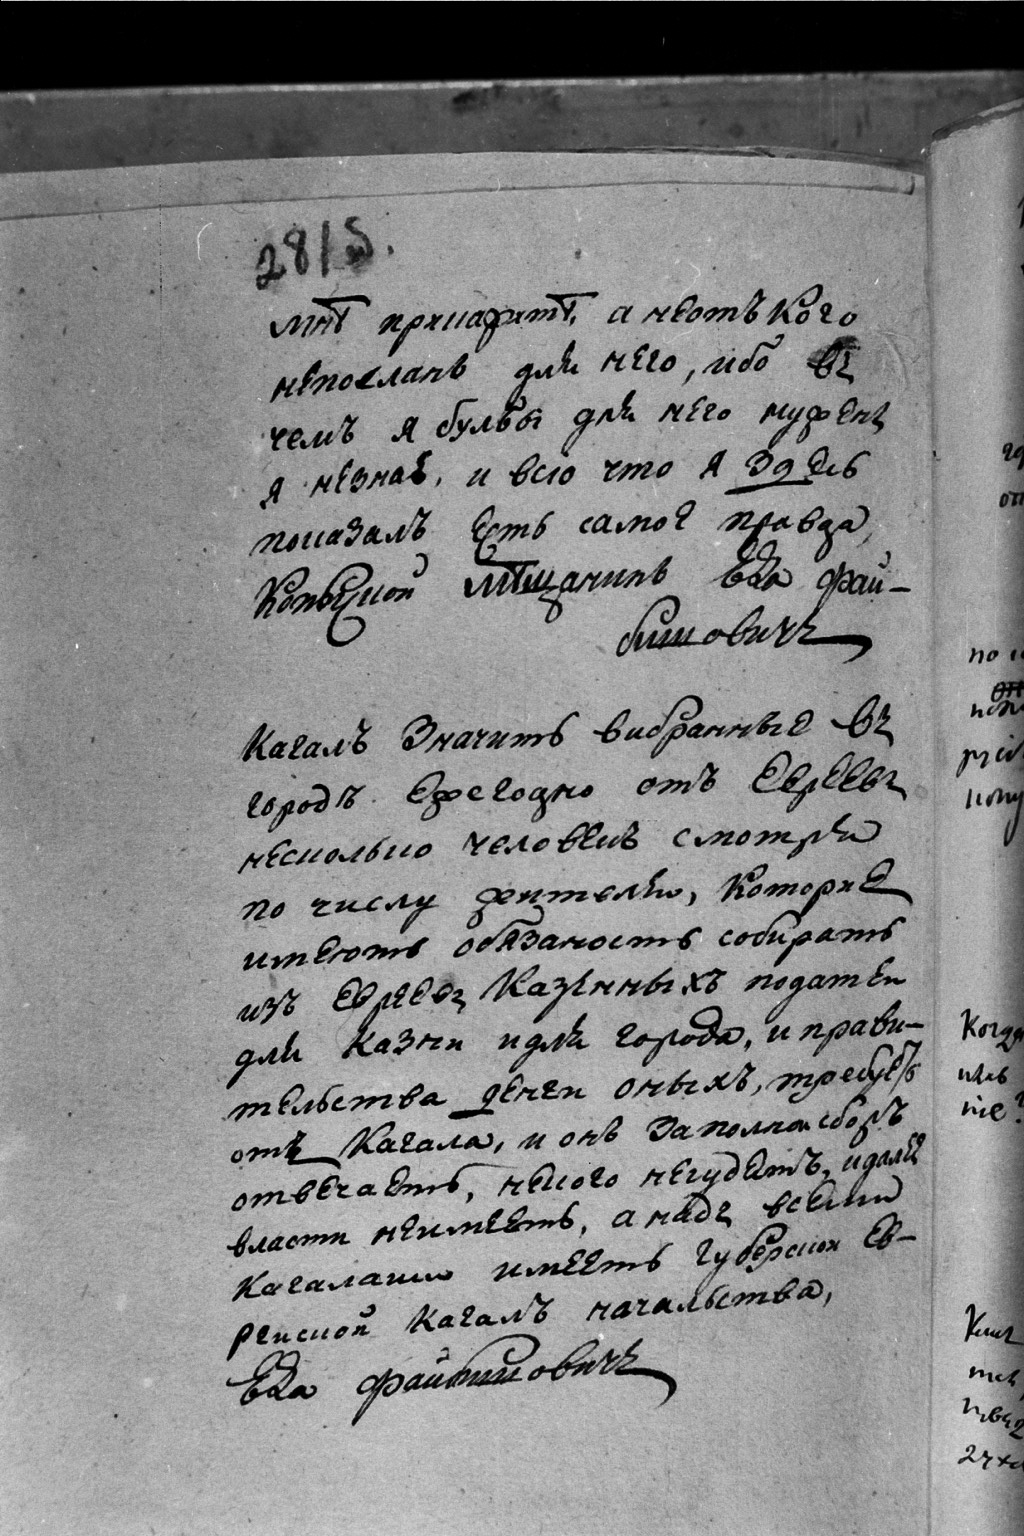 2815.
мнѣ приказитъ, а неотъ кого
непосланъ для него, ибо въ
чемъ я булъбы для него нуженъ
я незнаю, и всю что я здѣсь
показалъ есть самое правда,
Копыской мѣщанинъ Ека Фай-
бишовичъ
Кагалъ значитъ вибранные въ
городъ ежегодно отъ Евреевъ
несколько человекъ смотря
по числу жителей, которие
имеютъ обязаность собирать
изъ Евреевъ казенныхъ податей
для казни идля города, и прави-
тельства денги оныхъ, требуетъ
отъ Кагала, и онъ заполной сборъ
отвечаетъ, некого несудетъ, идалее
власти неимеетъ, а надъ всеми
Кагалами имеетъ губерской Ев-
рейской Кагалъ начальства,
Ека Файбишовичъ
по
Когда